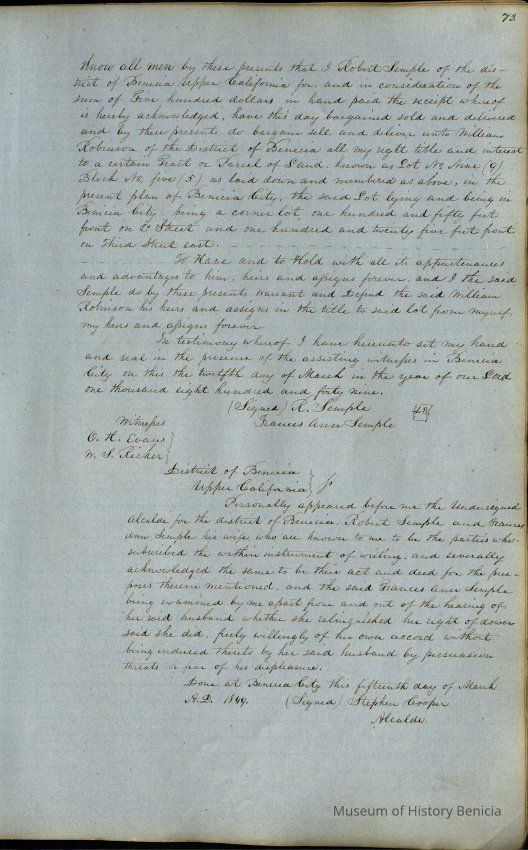 73.
Know all men by these presents that I Robert Semple of the dis-
trict of Benicia Upper California for, and in consideration of the
sum of Five hundred dollars in hand paid the receipt whereof
is hereby acknowledged, have this day bargained sold and delivered
and by these presents do bargain sell and deliver unto William
Robinson of the District of Benicia all my right title and interest
to a certain Tract or Parcel of Land, known as Lot No Nine (9)
Block No. five (5) as laid down and numbered as above, in the
present plan of Benicia City, the said Lot lying and being in
Benicia City being a corner lot, one hundred and fifty feet
front on C Street and one hundred and twenty five feet front
on Third Street east.
To Have and to Hold with all its appurtenances
and advantages to him, heirs and assigns forever, and I the said
Semple do by these presents warrant and Defend the said William
Robinson his heirs and assigns in the title to said lot from myself,
my heirs and assigns forever
In testimony whereof I have hereunto set my hand
and seal in the presence of the assisting witnesses in Benicia
City on this the twelfth day of March in the year of our Lord
one thousand eight hundred and forty nine.
(Signed) R. Semple
Witnesses Frances Ann Semple
O. H. Evans
W. S. Richer
District of Benicia
Upper California
Personally appeared before me the Undersigned
Alcalde for the district of Benicia, Robert Semple and Frances
Ann Semple his wife who are known to me to be the parties who
subscribed the within instrument of writing, and severally
acknowledged the same to be their act and deed for the pur-
poses therein mentioned, and the said Frances Ann Semple
being examined by me apart from and out of the hearing of
her said husband whether she relinquished her right of dower
said she did, freely willingly of her own accord without
being induced thereto by her said husband by persuasion
threats or fear of his displeasure.
Done at Benicia City this fifteenth day of March
A.D. 1849. (Signed) Stephen Cooper
Alcalde.
Museum of History Benicia